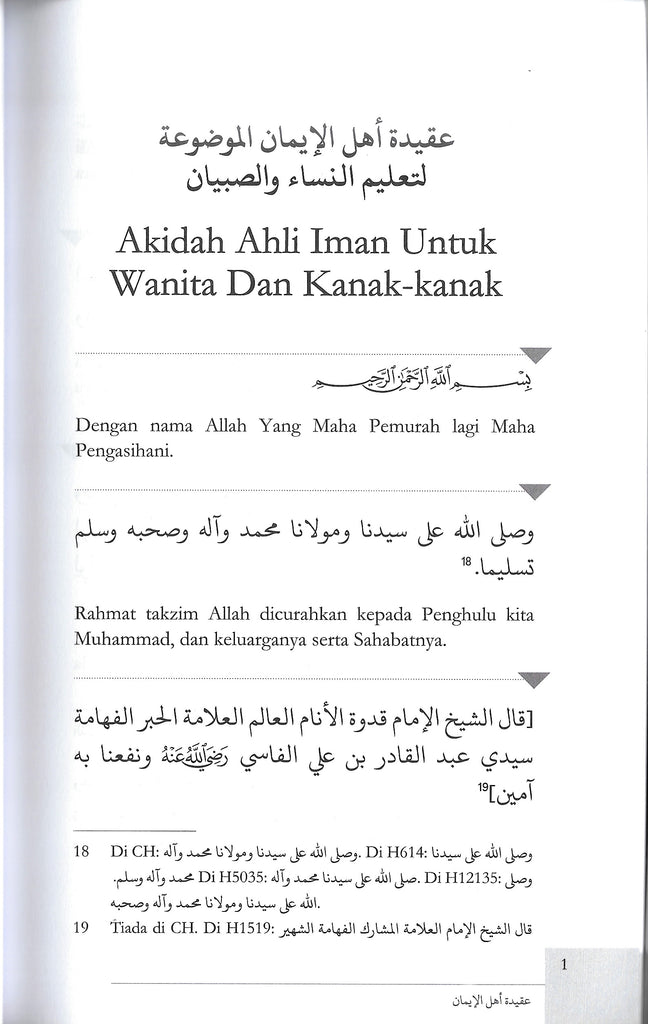 عقيدة أهل الإيمان الموضوعة
لتعليم النساء والصبيان
Akidah Ahli Iman Untuk
Wanita Dan Kanak-kanak
بسم الله الرحمن الرحيم
Dengan nama Allah Yang Maha Pemurah lagi Maha
Pengasihani.
وصلى الله على سيدنا ومولانا محمد وآله وصحبه وسلم
تسليما.18
Rahmat takzim Allah dicurahkan kepada Penghulu kita
Muhammad, dan keluarganya serta Sahabatnya.
[قال الشيخ الإمام قدوة الأنام العالم العلامة الحبر الفهامة
سيدي عبد القادر بن علي الفاسي رضي الله عنه ونفعنا به
آمين]19
18 Di CH: وصلى الله على سيدنا ومولانا محمد وآله. Di H614: وصلى الله على سيدنا
محمد وآله وسلم. Di H5035: صلى الله على سيدنا محمد وآله. Di H12135: وصلى
الله على سيدنا ومولانا محمد وآله وصحبه.
19 Tiada di CH. Di H1519: قال الشيخ الإمام العلامة المشارك الفهامة الشهير
1
عقيدة أهل الإيمان